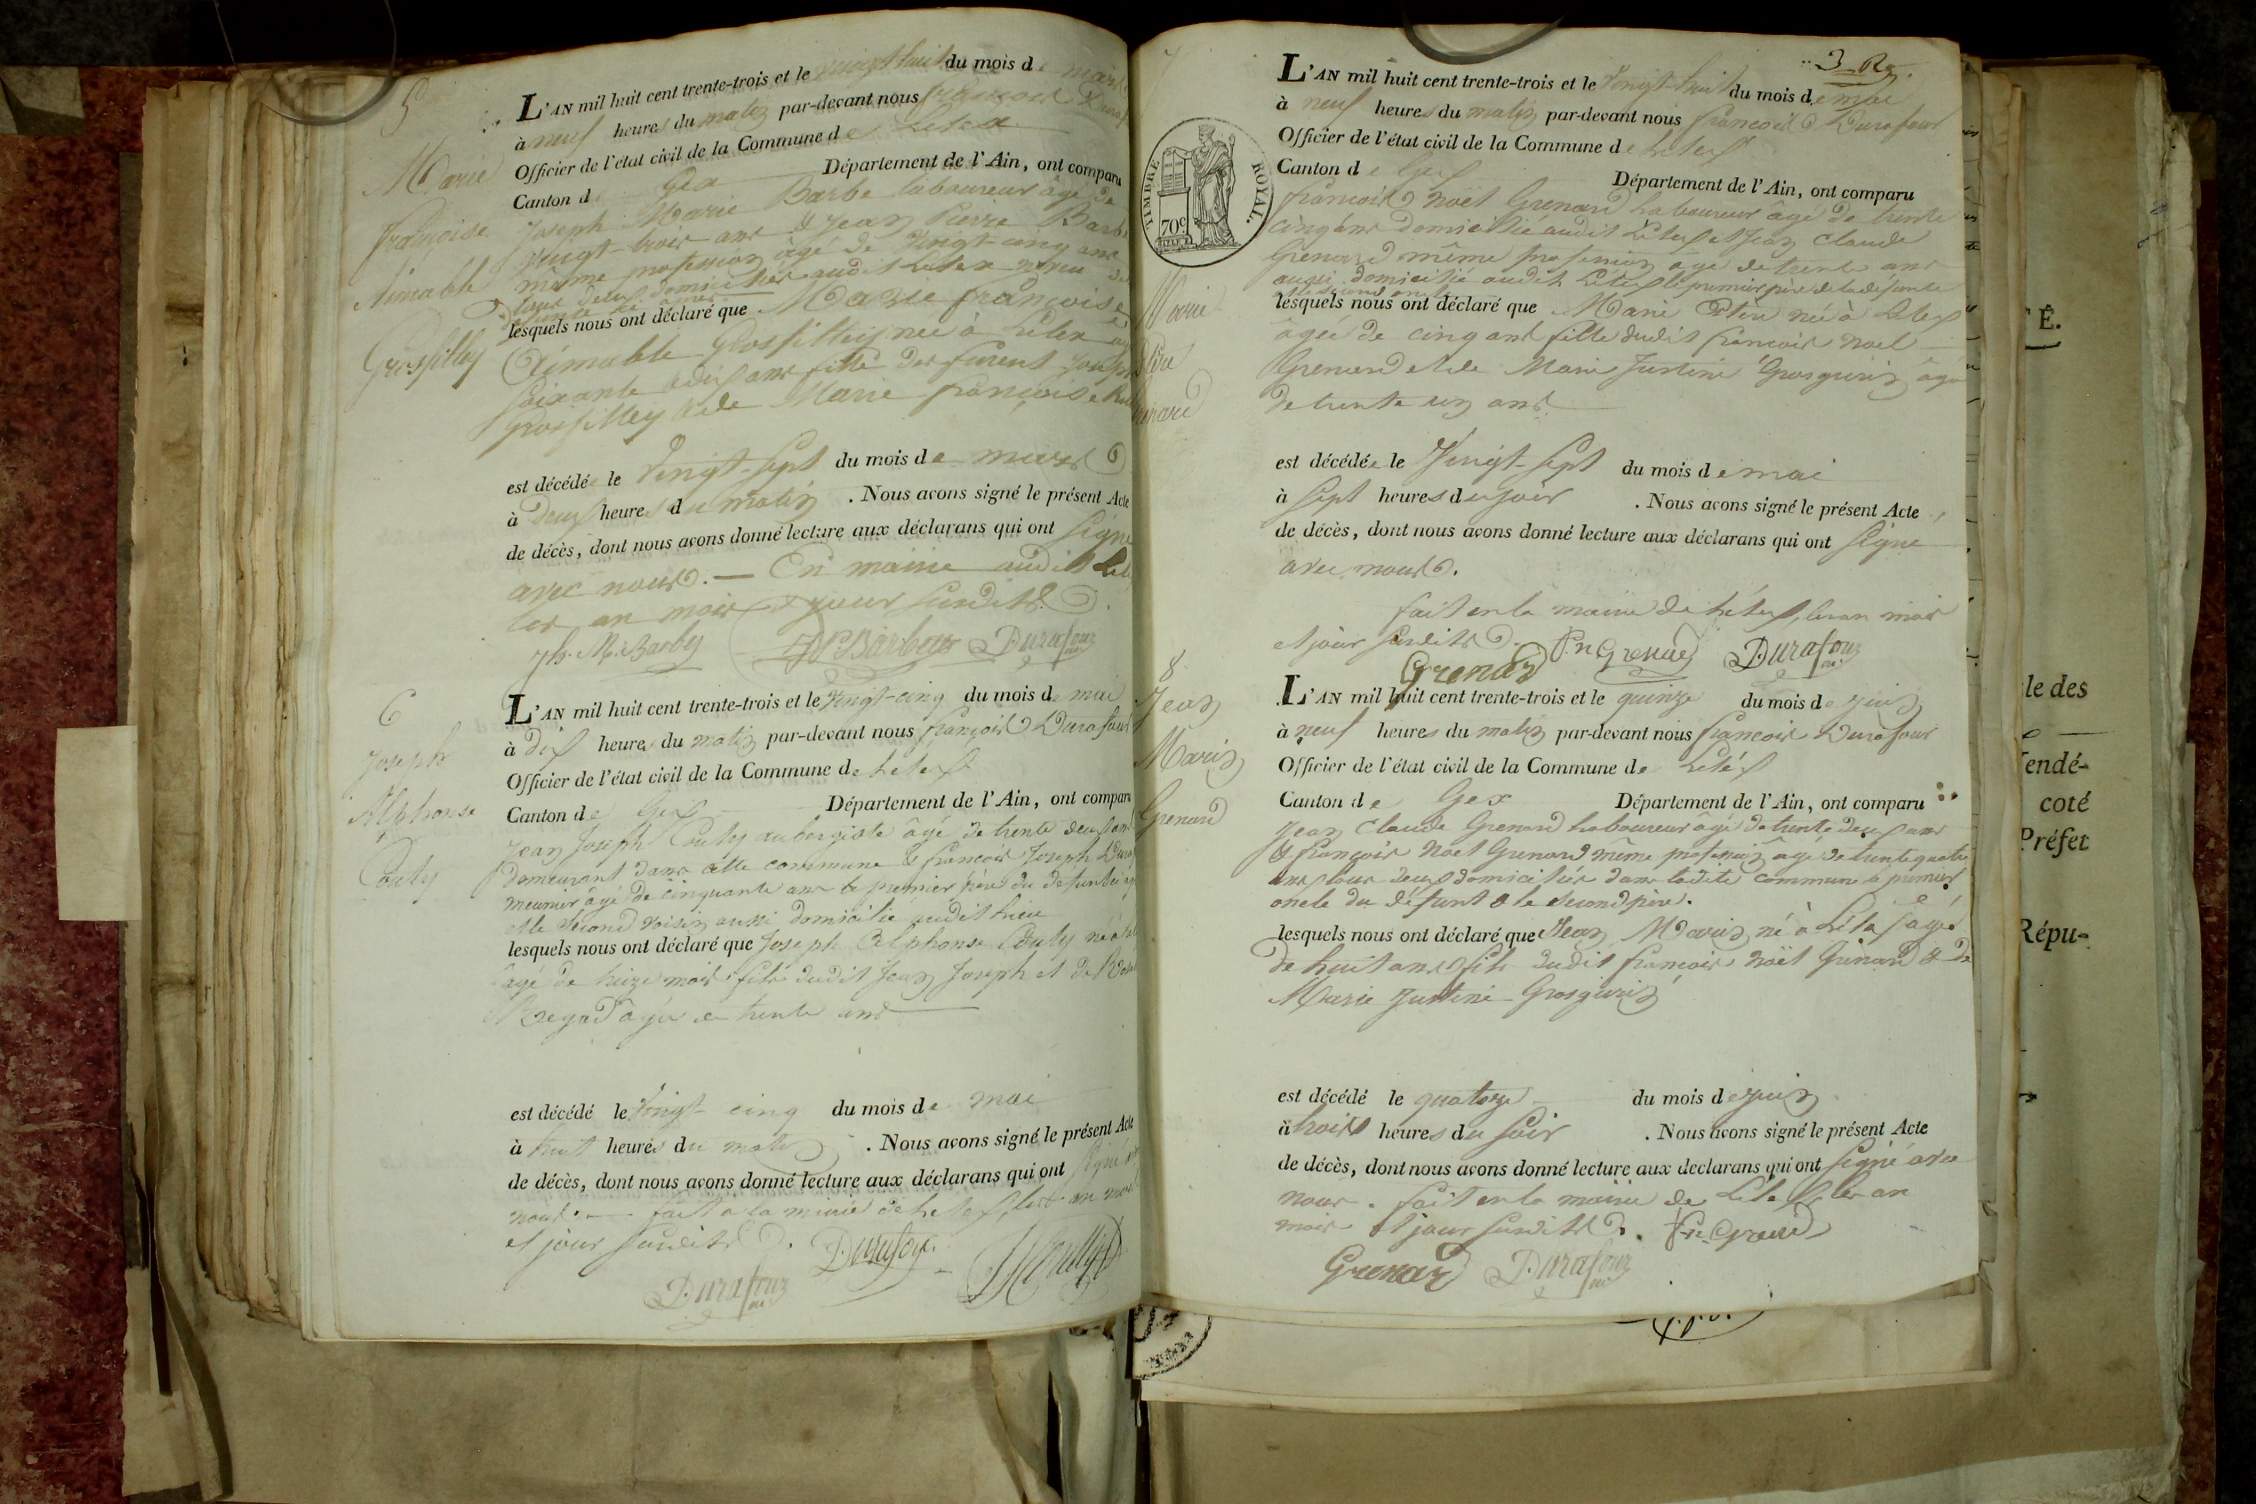 5
Marie
françoise
Aimable
Grosfilley
L'AN mil huit cent trente-trois et le vingt huit du mois de mars
à neuf heures du matin par-devant nous françois Duraf
Officier de l'état civil de la Commune de Lélex
Canton de Gex Département de l'Ain, ont comparu
Joseph Marie Barbe laboureur âgé de
vingt-trois ans & Jean Pierre Barbe
même profession âgé de vingt-cinq ans
tous deux domiciliés audit Lélex neveu de
lesquels nous ont déclaré que Marie françoise
Aimable Grosfilley née à Lélex
soixante & dix ans fille des furent Joseph
Grosfilley & de Marie françoise
est décédée le vingt-sept du mois de mars
à deux heures du matin. Nous avons signé le présent Acte
de décès, dont nous avons donné lecture aux déclarans qui ont signé
avec nous. — En mairie audit Lélex
les an mois & jour susdits.
Jh. M. Barbe JP Barbe Durafour
6
Joseph
Alphonse
Couty
L'AN mil huit cent trente-trois et le vingt-cinq du mois de mai
à dix heures du matin par-devant nous françois Durafour
Officier de l'état civil de la Commune de Lelex
Canton de Gex Département de l'Ain, ont comparu
Jean Joseph Couty aubergiste âgé de trente deux ans
demeurant dans cette commune & françois Joseph
meunier âgé de cinquante ans le premier père du défunt
et le second voisin aussi domicilié audit lieu
lesquels nous ont déclaré que Joseph Alphonse Couty né à
âgé de mois fils dudit Jean Joseph et de
Regad âgée de trente ans
est décédé le vingt-cinq du mois de mai
à huit heures du matin. Nous avons signé le présent Acte
de décès, dont nous avons donné lecture aux déclarans qui ont signé
nous. — fait à la mairie de Lelex, les an mois
et jour susdits. Durafour
Durafour
3
7
TIMBRE ROYAL.
70c
Marie
Grenard
L'AN mil huit cent trente-trois et le vingt-huit du mois de mai
à neuf heures du matin par-devant nous françois Durafour
Officier de l'état civil de la Commune de Lelex
Canton de Gex Département de l'Ain, ont comparu
françois Noël Grenard laboureur âgé de trente
cinq ans domicilié audit Lélex et Jean Claude
Grenard même profession âgé de trente ans
aussi domicilié audit Lélex le premier père de la défunte
lesquels nous ont déclaré que Marie née à Lélex
âgée de cinq ans fille dudit françois Noel
Grenard et de Marie Justine Grosgurin âgée
de trente un ans
est décédée le vingt-sept du mois de mai
à sept heures du soir. Nous avons signé le présent Acte
de décès, dont nous avons donné lecture aux déclarans qui ont signé
avec nous.
fait en la mairie de Lélex, les an mois
et jour susdits. Grenard Durafour
Grenard
8
Jean
Marin
Grenard
L'AN mil huit cent trente-trois et le quinze du mois de juin
à neuf heures du matin par-devant nous françois Durafour
Officier de l'état civil de la Commune de Léléx
Canton de Gex Département de l'Ain, ont comparu
Jean Claude Grenard laboureur âgé de trente deux ans
& françois Noël Grenard même profession âgé de trente quatre
ans tous deux domiciliés dans ladite commune le premier
oncle du défunt & le second père.
lesquels nous ont déclaré que Jean Marin né à Lélex âgé
de huit ans fils dudit françois Noël Grenard & de
Marie Justine Grosgurin
est décédé le quatorze du mois de juin
à trois heures du soir. Nous avons signé le présent Acte
de décès, dont nous avons donné lecture aux declarans qui ont signé avec
nous. fait en la mairie de Lélex les an
mois et jour susdits.
Grenard Durafour
É.
le des
endé-
coté
Préfet
Répu-